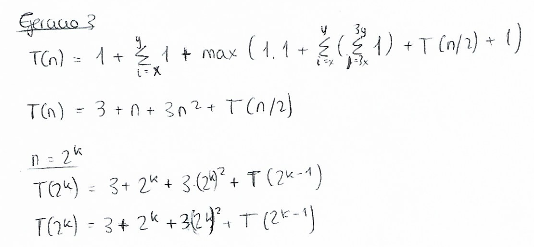 Ejercicio 3
T(n) = 1 + y∑i=x 1 + max (1, 1 + y∑i=x (3y∑j=3x 1) + T(n/2) + 1)
T(n) = 3 + n + 3n² + T(n/2)
n = 2ᵏ
T(2ᵏ) = 3 + 2ᵏ + 3·(2ᵏ)² + T(2ᵏ⁻¹)
T(2ᵏ) = 3 + 2ᵏ + 3(2ᵏ)² + T(2ᵏ⁻¹)